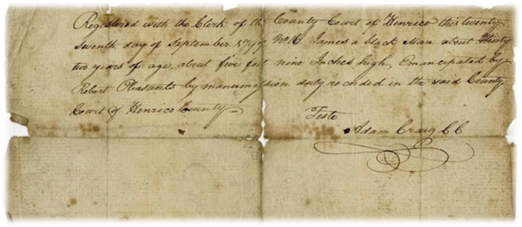 Registered with the Clerk of the County Court of Henrico this twenty
Seventh day of September No 16 James a black Man about
two years of age, about five feet nine Inches high, Emancipated by
Robert Pleasants by manumission duly recorded in the said County
Court of Henrico County
Teste
Adam Craig CC